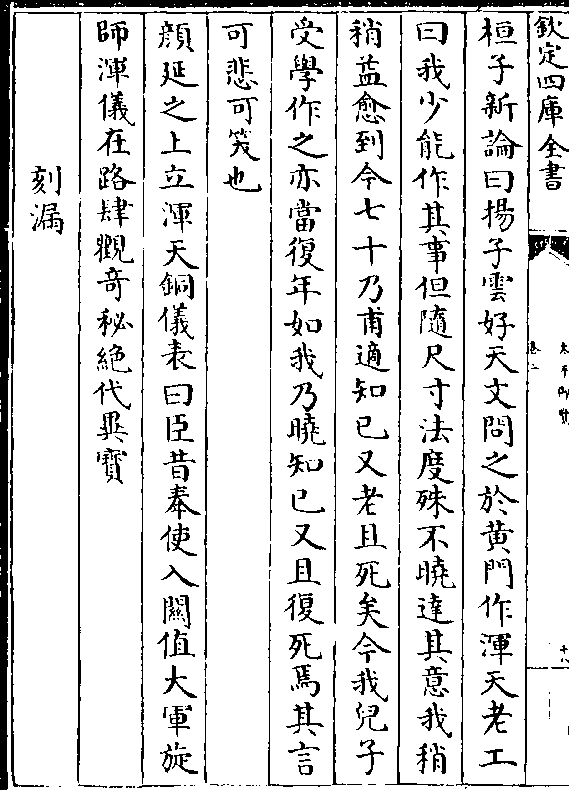 欽定四庫全書
太平御覽
卷二
十八
桓子新論曰揚子雲好天文問之於黃門作渾天老工
曰我少能作其事但隨尺寸法度殊不曉達其意我稍
稍益愈到今七十乃甫適知已又老且死矣今我兒子
受學作之亦當復年如我乃曉知已又且復死焉其言
可悲可笑也
顔延之上立渾天銅儀表曰臣昔奉使入關值大軍旋
師渾儀在路肆觀奇秘絶代異寶
刻漏